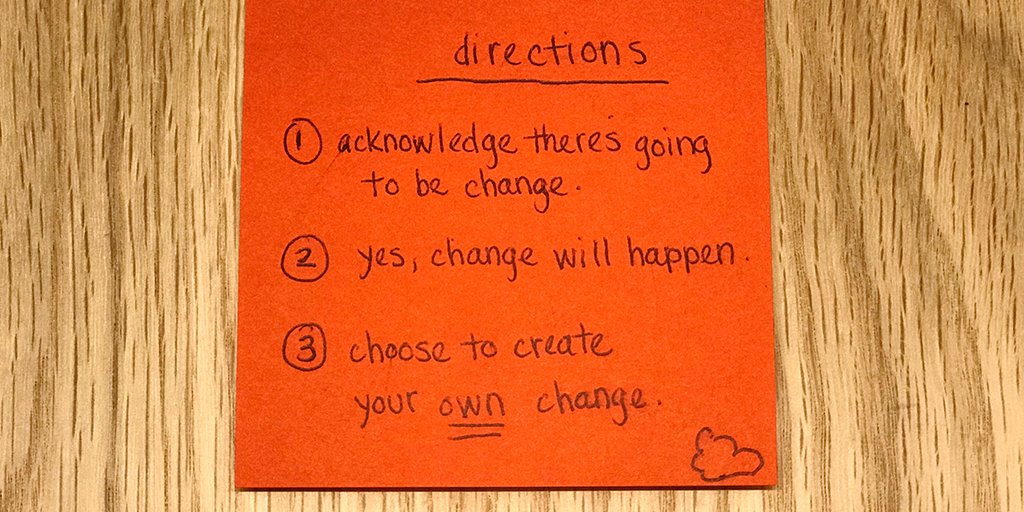 directions
① acknowledge there's going
to be change.
② yes, change will happen.
③ choose to create
your own change.